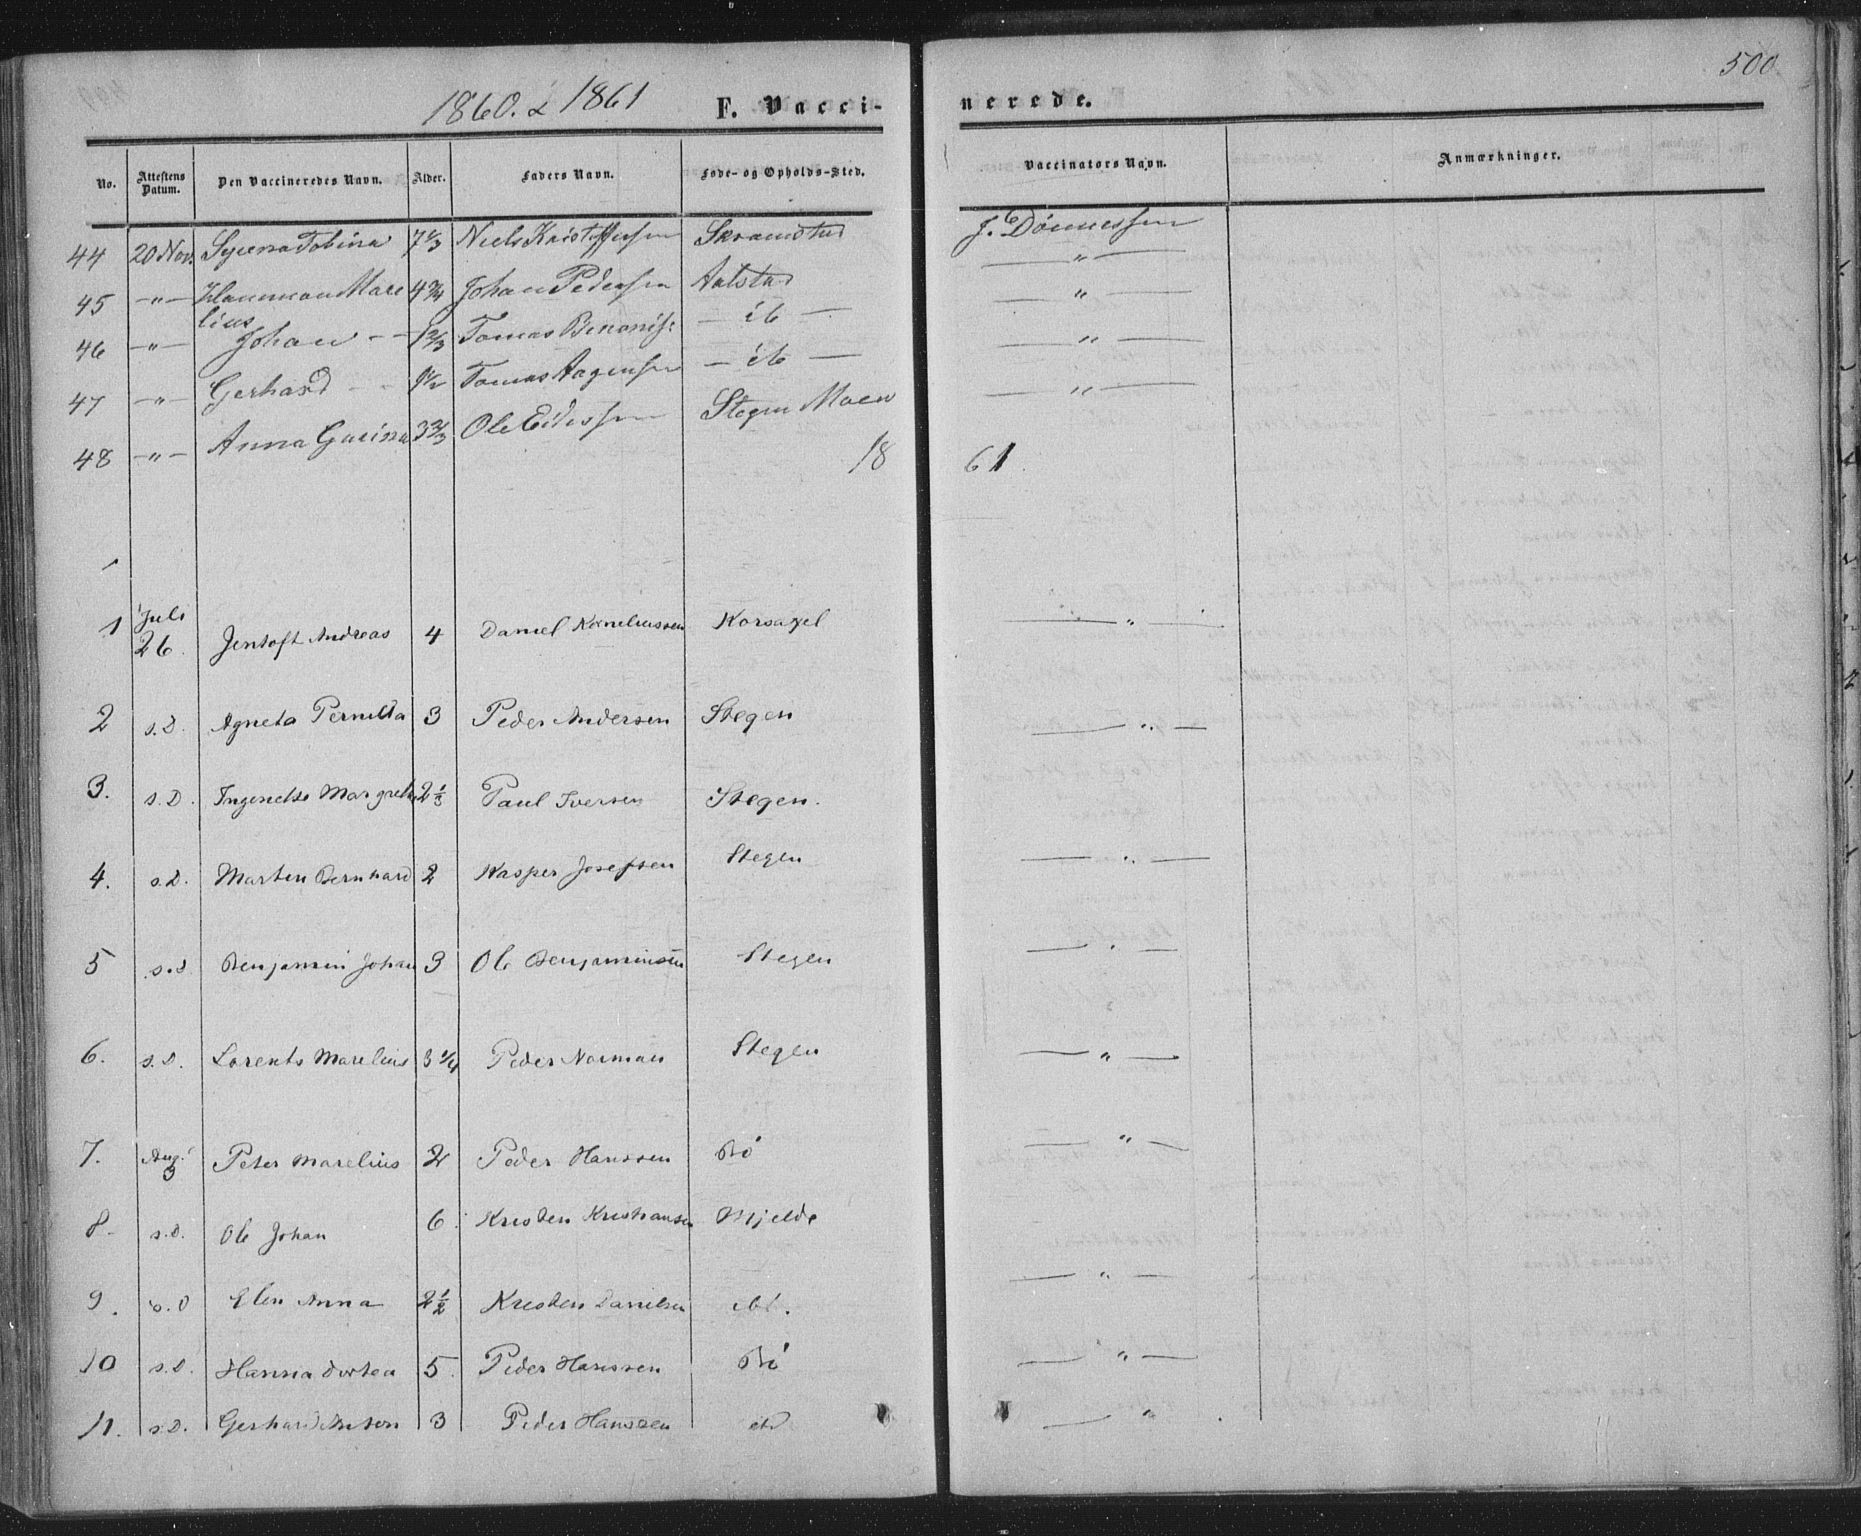 500
1860. & 1861 F. Vacci- nerede.
No. Attestens Datum. Den Vaccineredes Navn. Alder. Faders Navn. Føde- og Opholds-Sted. Vaccinators Navn. Anmærkninger.
44 20 Nov. Syverna Tobina 7 1/3 Niels Kristoffersen Skramstad J. Dønnessen
45 —"— Hanman Mare 4 3/4 Johan Pedersen Aalstad —"—
lius
46 —"— Johan — 1 2/3 Tomas Benonis: — ib — —"—
47 —"— Gerhard — 1 1/2 Tomas Aagensen — ib — —"—
48 —"— Anna Gurina 3 2/3 Ole Edissen Stegen Moen —"—
18 61
1 Juli 26. Jentoft Andreas 4 Daniel Korneliussen Korsaxel —"—
2 s.D. Agneta Pernilla 3 Peder Andersen Stegen —"—
3. s.D. Ingenette Margrete 2 1/3 Paul Iversen Stegen.
4. s.D. Marten Bernhard 2 Kasper Josefsen Stegen —"—
5 s.d Benjamin Johan 3 Ole Benjaminsen Stegen —"—
6. s.D. Lorents Marelius 3 1/4 Peder Norman Stegen —"—
7. Aug. 3 Peter Marelius 2 Peder Hanssen Bö —"—
8. s.d. Ole Johan 6. Kristen Kristiansen Mjelde
9. s.D Elen Anna 2 1/2 Kresten Danielsen ibd. —"—
10 s.D. Hanna Dortea 5. Peder Hanssen Bö —"—
11. s.D. Gerhard Anton 3 Peder Hanssen —"—